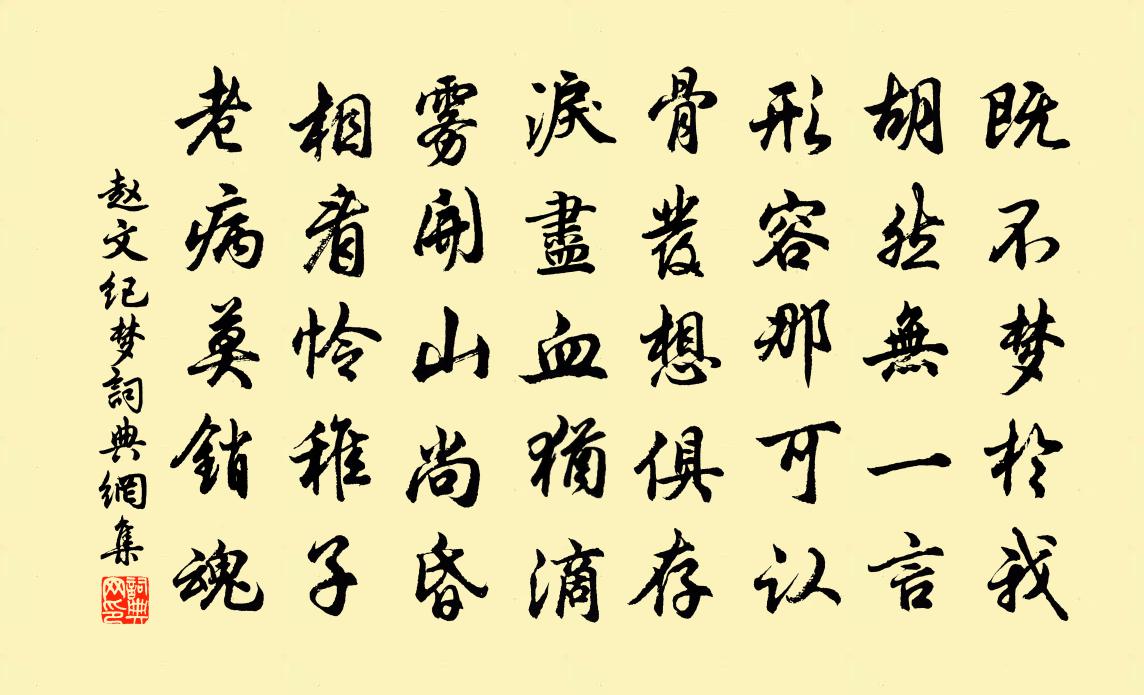 既不梦於我
胡然無一言
形容那可认
骨發想俱存
淚盡血猶滴
雾開山尚昏
相看怜稚子
老病莫銷魂
赵文纪梦詞典網集
詞典网印